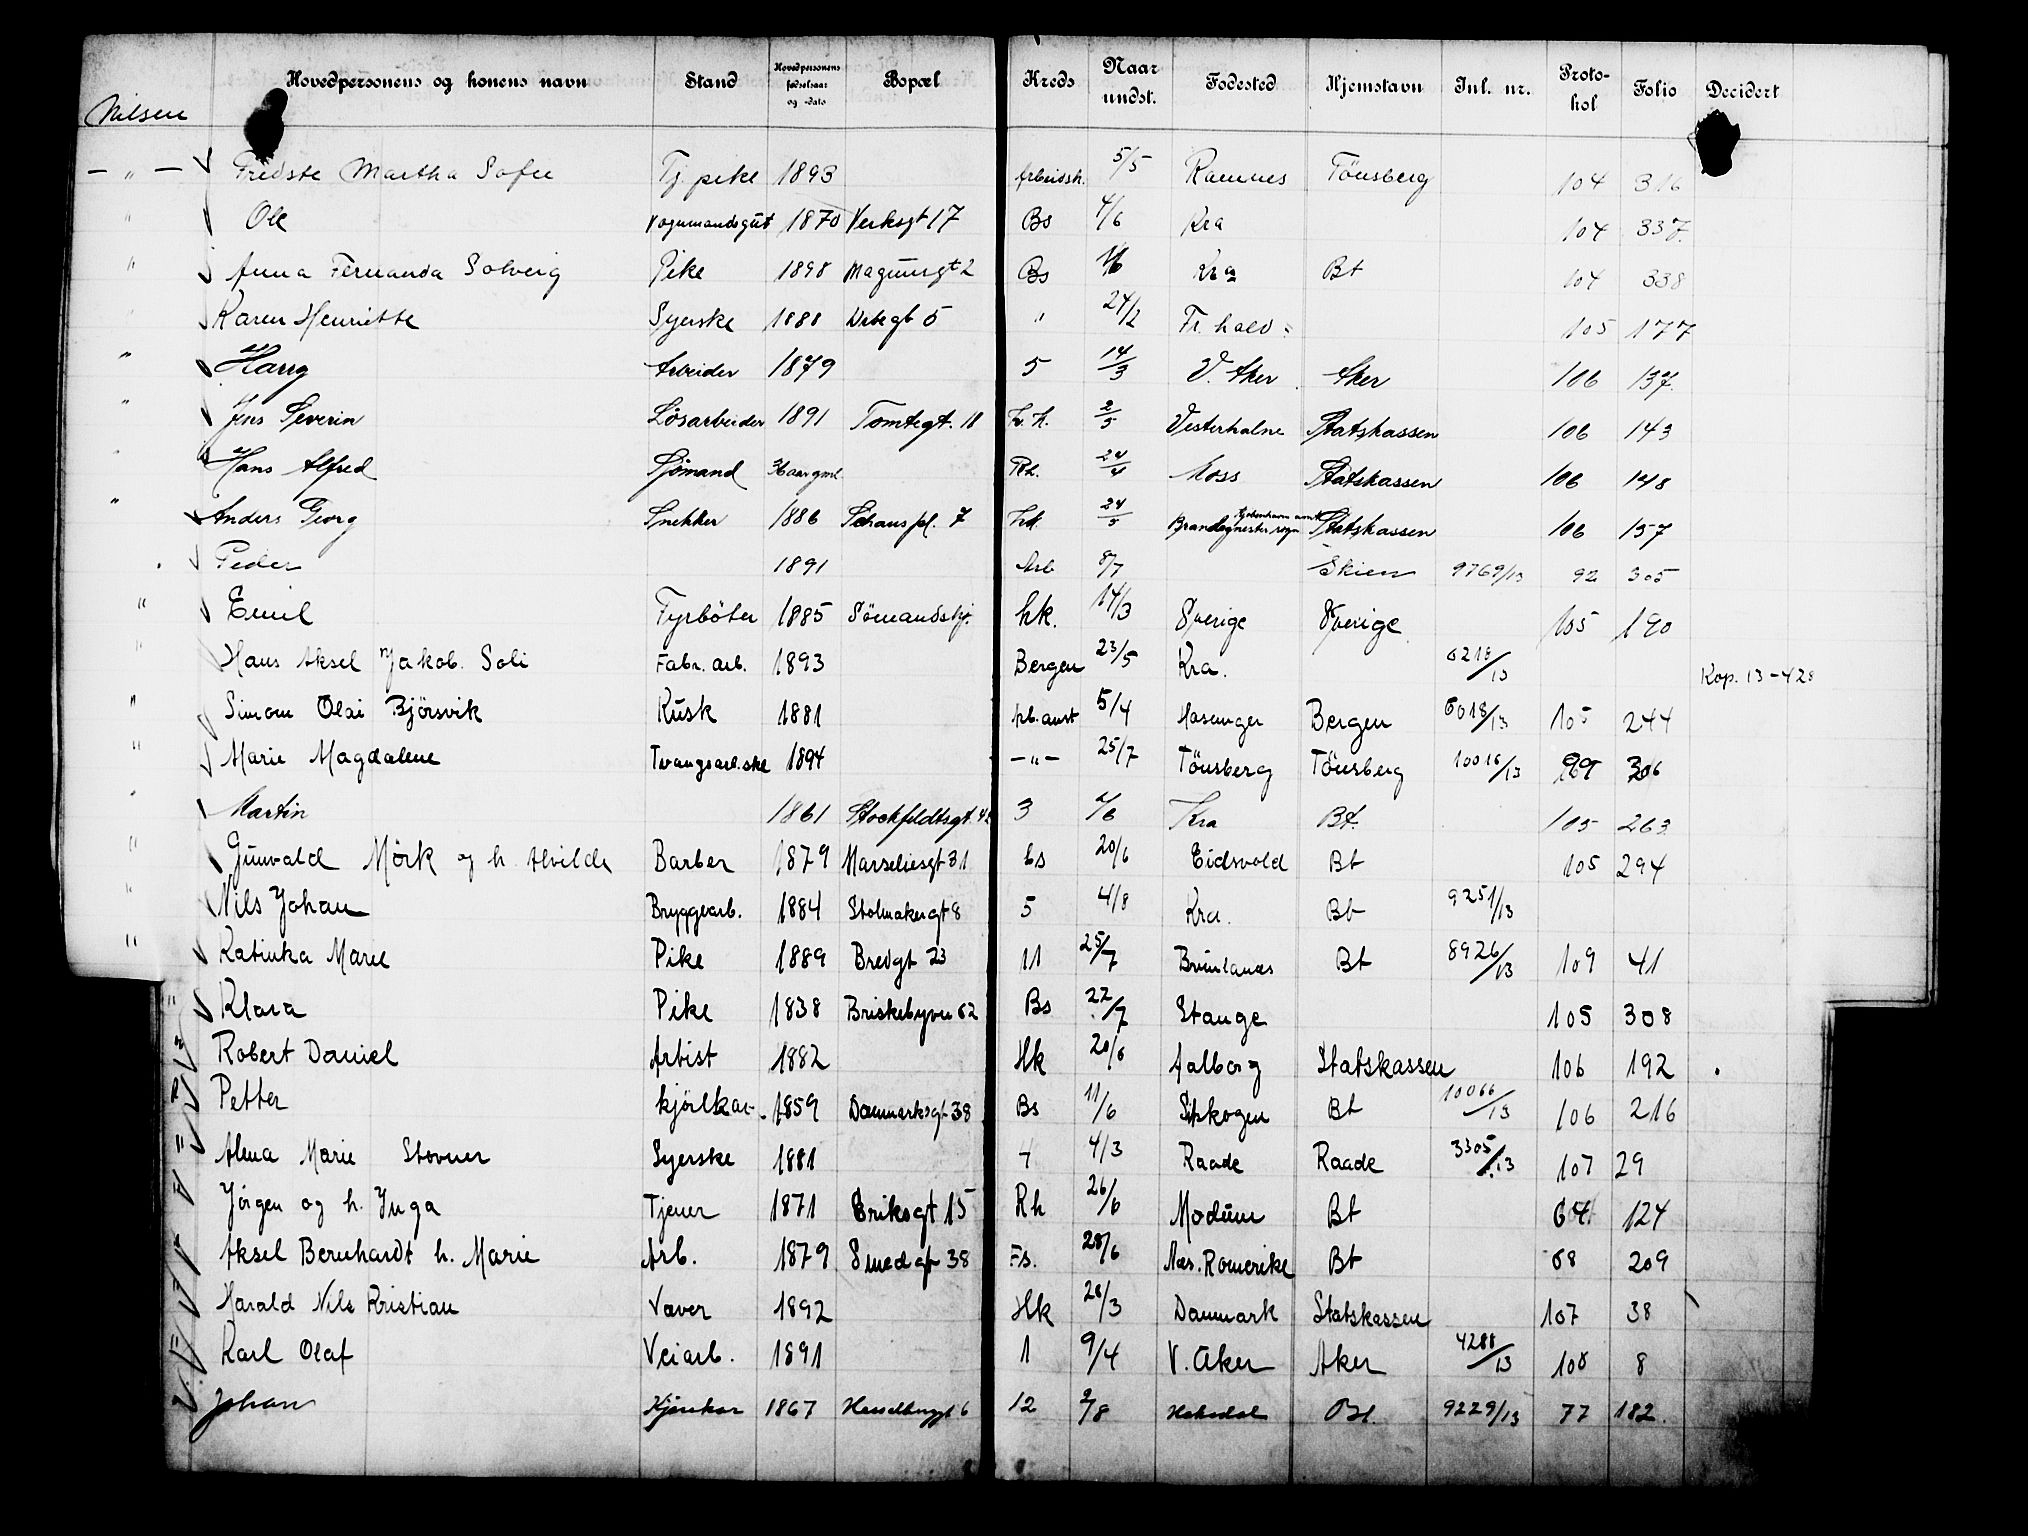 Hovedpersonens og konens navn Stand Hovedpersonens fødselsaar og -dato Bopæl Kreds Naar undst. Fødested Hjemstavn Inl. nr. Protokol Folio Decidert
Nilsen
— " — Fredste Martha Sofie Tj. pike 1893 Arbeidsh. 5/5 Ramnes Tönsberg 104 316
" Ole Vognmandsgut 1870 Verksgt 17 Bs 4/6 Kra 104 337
" Anna Fernanda Solveig Pike 1898 Magnusgt 2 Bs Kra Bt 104 338
" Karen Henriette Syerske 1888 5 " 24/2 Fr. hald 105 177
" Harry Arbeider 1879 5 14/3 V. Aker Aker 106 137
" Jns Severin Løsarbeider 1891 Tomtegt. 18 2/5 Statskassen 106 143
" Hans Alfred Sjømand Rh. 24/4 Moss Statskassen 106 148
" Anders Georg Snekker 1886 Schouspl. 7 hk. 24/5 Statskassen 106 157
Peder 1891 Arb 8/7 Skien 9769/13 92 305
" Emil Fyrböter 1885 hk. 14/3 Sverige Sverige 105 190
" Hans Aksel Jakob. Soli Fabr. arb. 1893 Bergen 23/5 Kra. 6218/13 Kop. 13-428
" Simon Olai Björsvik Kusk 1881 5/4 Hosanger Bergen 6018/13 105 244
" Marie Magdalene Tvangsarb.ske 1894 — " — 25/7 Tönsberg Tönsberg 10016/13 306
" Martin 1861 Stockfledtsgt. 42 3 2/6 Kra Bt. 105 263
" Gunvald Mörk og h. Alvilde Barber 1879 Marseliesgt 31 Bs 20/6 Eidsvold Bt 105 294
" Nils Johan Bryggearb. 1884 Stolmakergt 8 5 4/8 Kra. Bt 9251/13
" Katinka Marie Pike 1889 Bredgt 23 11 25/7 Brunlanæs Bt 8926/13 109 41
" Klara Pike 1838 Briskebyvn 62 Bs 22/7 Stange 105 308
" Robert Daniel Artist 1882 Hk 20/6 Aalborg Statskassen 106 192
" Petter 1859 Danmarksgt 38 Bs 11/6 Bt 10066/13 106 216
" Alma Marie Stovner Syerske 1881 4/3 Raade Raade 3305/13 107 29
" Jörgen og h. Inga Tjener 1871 Eriksgt 15 Rh 26/6 Modum Bt 124
" Aksel Bernhardt h. Marie Arb. 1879 Smedgt 38 Fs. 28/6 Næs. Romerike Bt 68 209
" Harald Nils Kristian Væver 1892 Hk 28/3 Danmark Statskassen 107 38
" Karl Olaf Veiarb. 1891 1 9/4 V. Aker Aker 4288/13 108 8
Johan 1867 12 2/8 Hakedal Bt. 9229/13 77 182